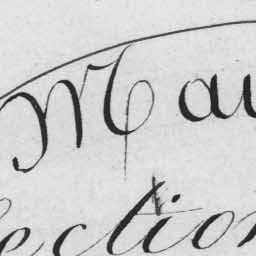 Mau
ection